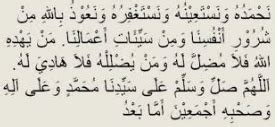 نَحْمَدُهُ وَنَسْتَعِيْنُهُ وَنَسْتَغْفِرُهُ وَنَعُوْذُ بِاللهِ مِنْ
شُرُوْرِ أَنْفُسِنَا وَمِنْ سَيِّئَاتِ أَعْمَالِنَا. مَنْ يَهْدِهِ
اللهُ فَلاَ مُضِلَّ لَهُ وَمَنْ يُضْلِلْهُ فَلاَ هَادِيَ لَهُ.
اَللَّهُمَّ صَلِّ وَسَلِّمْ عَلَى سَيِّدِنَا مُحَمَّدٍ وَعَلَى آلِهِ
وَصَحْبِهِ أَجْمَعِيْنَ أَمَّا بَعْدُ